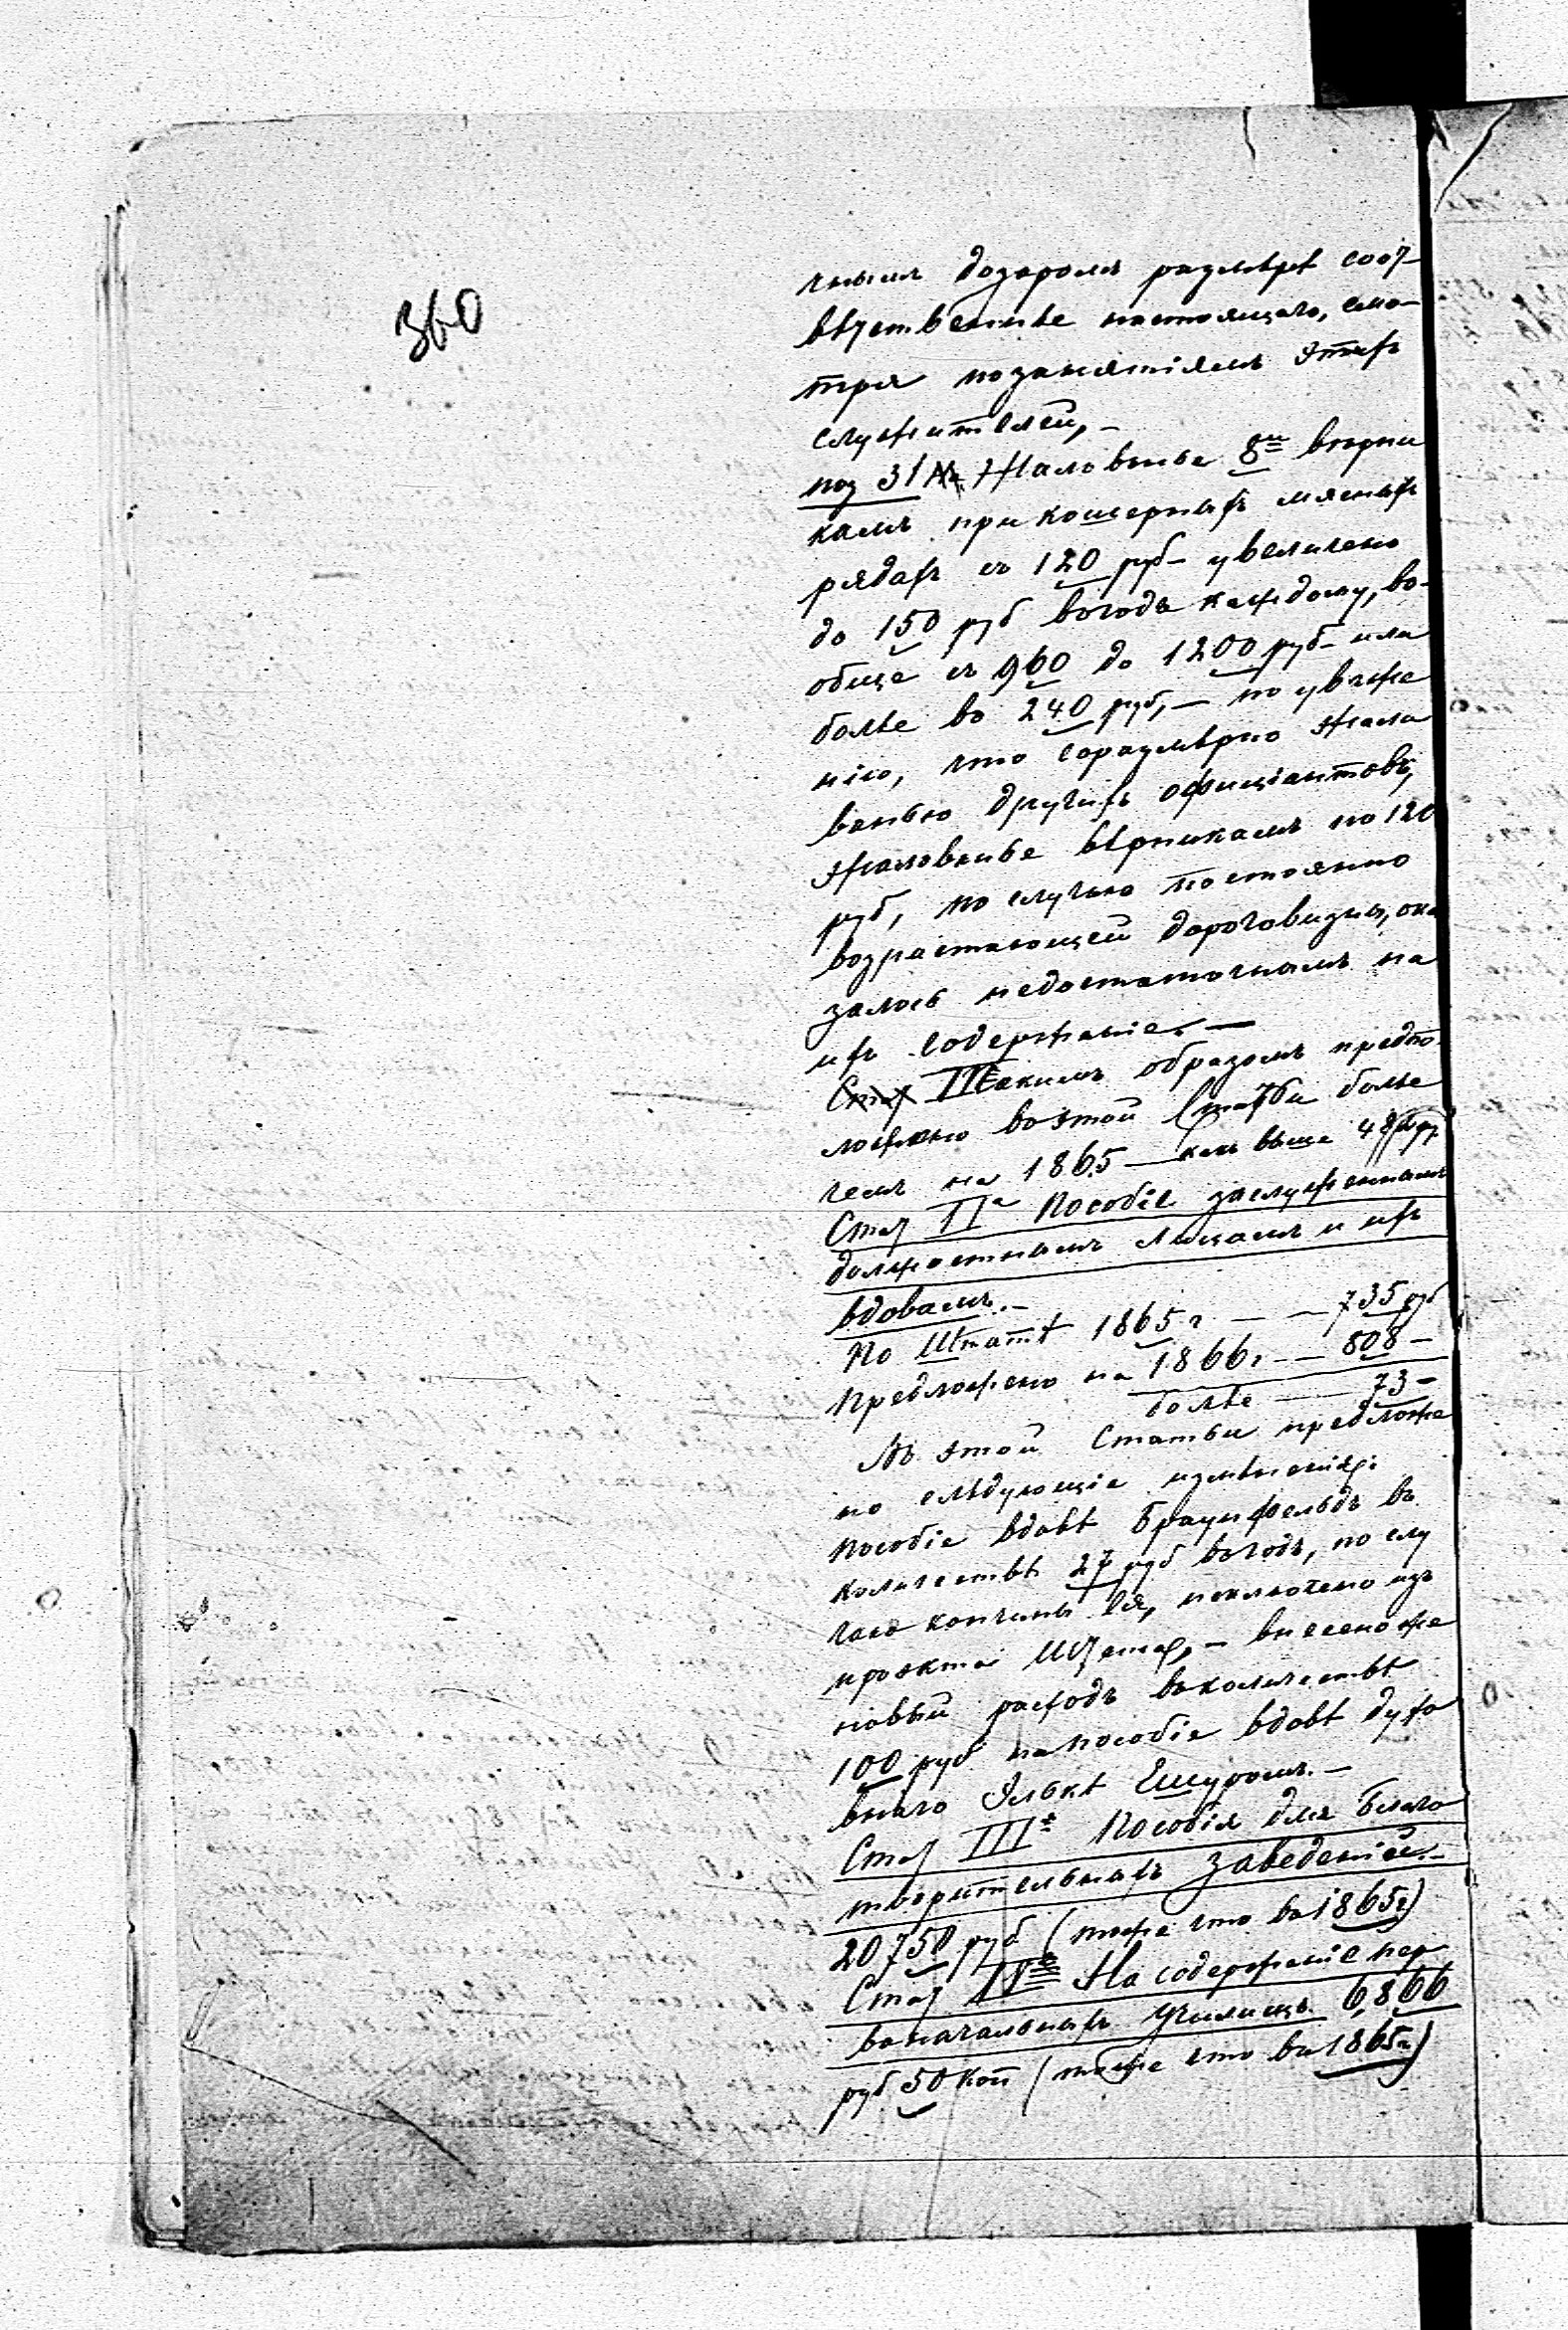 360
чнымъ дозоромъ размѣрѣ соот-
вѣтственнѣе настоящаго, смо-
тря по занятіямъ этихъ
служителей, -
под 31 № Жалованье 8ми вѣрни
камъ при кошерныхъ мясныхъ
рядахъ съ 120 руб- увеличено
до 150 руб въ годъ каждому, во-
обще съ 960 до 1200 руб- или
болѣе во 240 руб, — по уваже
нію, что соразмѣрно жало
ванью другихъ офиціантовъ,
жалованье вѣрникамъ по 120
руб, по случаю постоянно
возрастающей дороговизны, ока
залось недостаточнымъ на
ихъ содержаніе. —
Такимъ образомъ предпо
ложено въ этой Статьи болѣе
чемъ на 1865 — какъ выше 48 руб.
Стат IIа Пособіе заслуженнымъ
должностнымъ лицамъ и ихъ
вдовамъ. -
По Штатѣ 1865 г — — 735 руб
Предложено на 1866 г — — 808 —
болѣе — 73 —
Въ этой Статьи предложе
но слѣдующіе измѣненія:
Пособіе вдовѣ Браунфельдъ въ
количествѣ 27 руб въ годъ, по слу
чаю кончины ея, исключено изъ
проэкта Штата, - внесено же
новый расходъ въ количествѣ
100 руб на пособіе вдовѣ духо
внаго Элькѣ Ешуромъ. —
Стат IIIя Пособія для благо
творительныхъ заведеній. -
20750 руб (тоже что въ 1865 г)
Стат IVя На содержаніе пер
воначальныхъ училищъ 6,866
руб 50 коп (тоже что въ 1865 г)